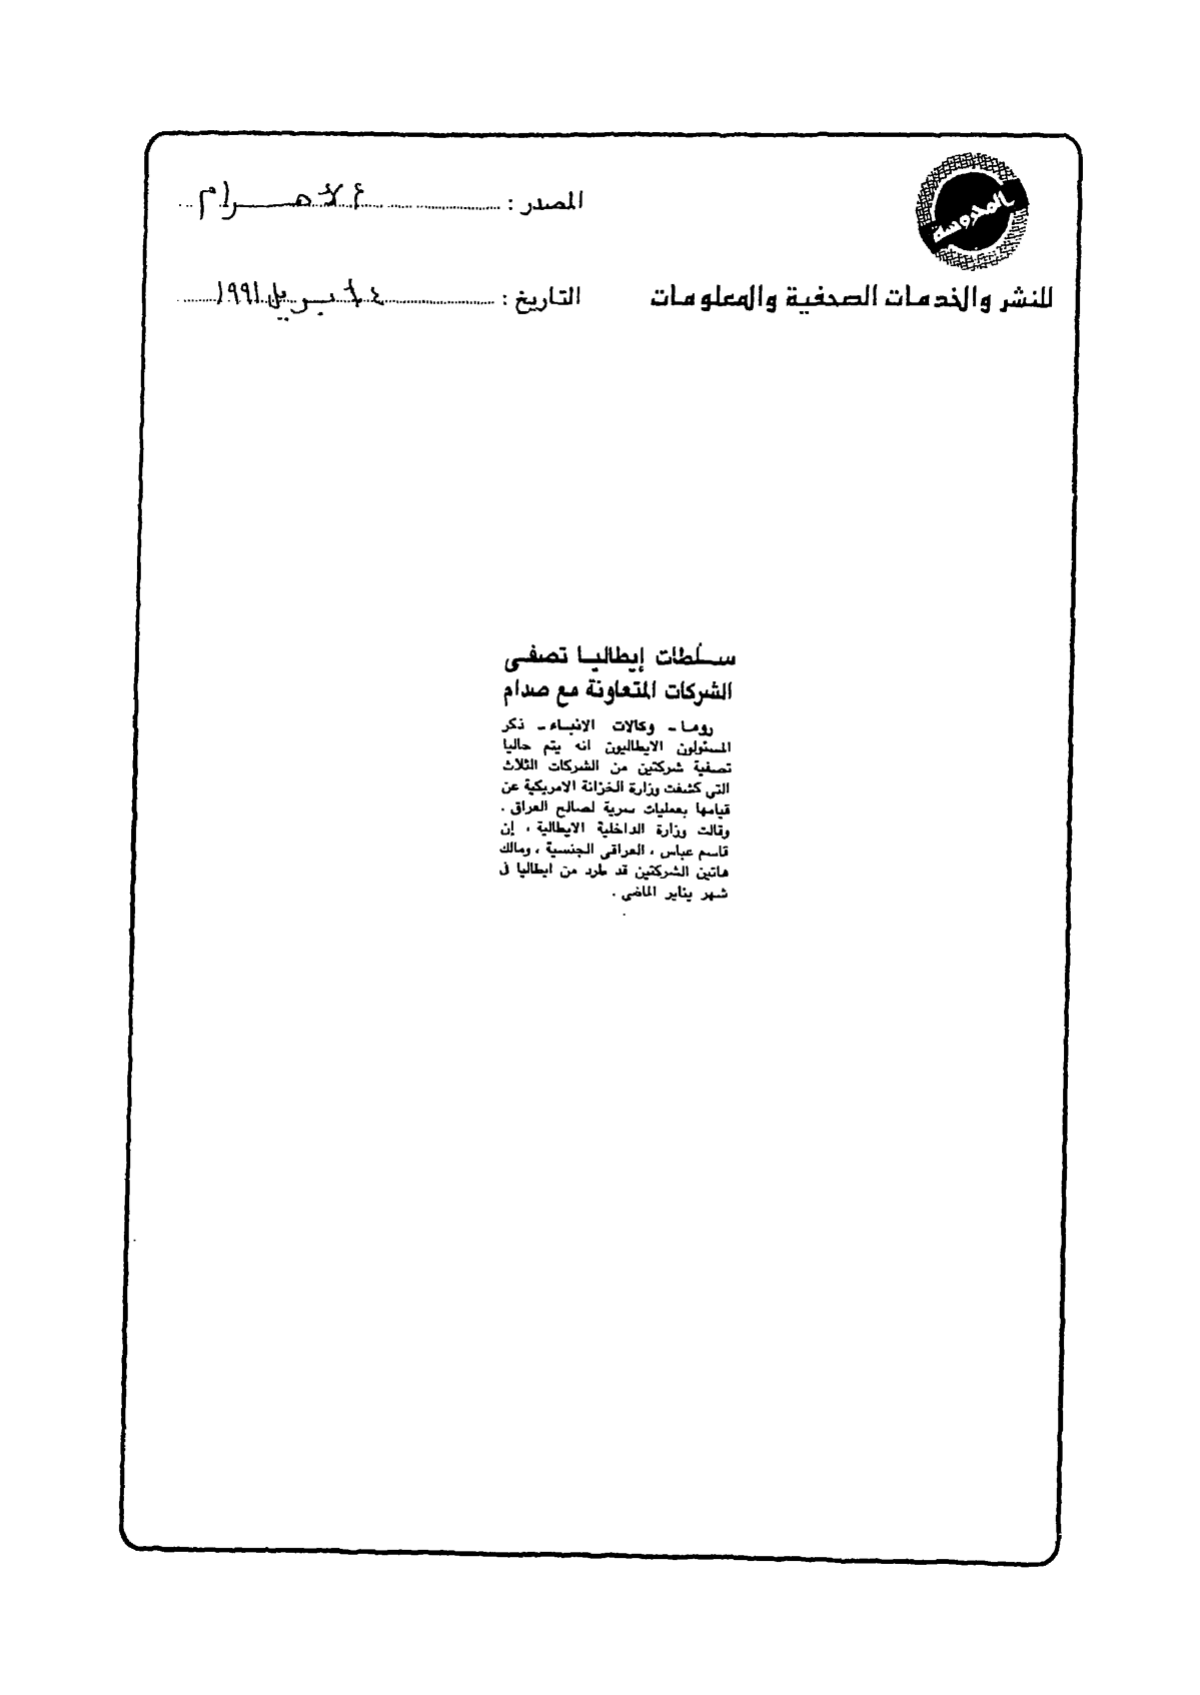 المحروسة
للنشر والخدمات الصحفية والمعلومات
المصدر : الأهرام
التاريخ : ٤ أبريل ١٩٩١
سلطات إيطاليا تصفى
الشركات المتعاونة مع صدام
روما ـ وكالات الانباء ـ ذكر
المسئولون الايطاليون انه يتم حاليا
تصفية شركتين من الشركات الثلاث
التى كشفت وزارة الخزانة الامريكية عن
قيامها بعمليات سرية لصالح العراق .
وقالت وزارة الداخلية الايطالية ، إن
قاسم عباس ، العراقى الجنسية ، ومالك
هاتين الشركتين قد طرد من ايطاليا فى
شهر يناير الماضى .